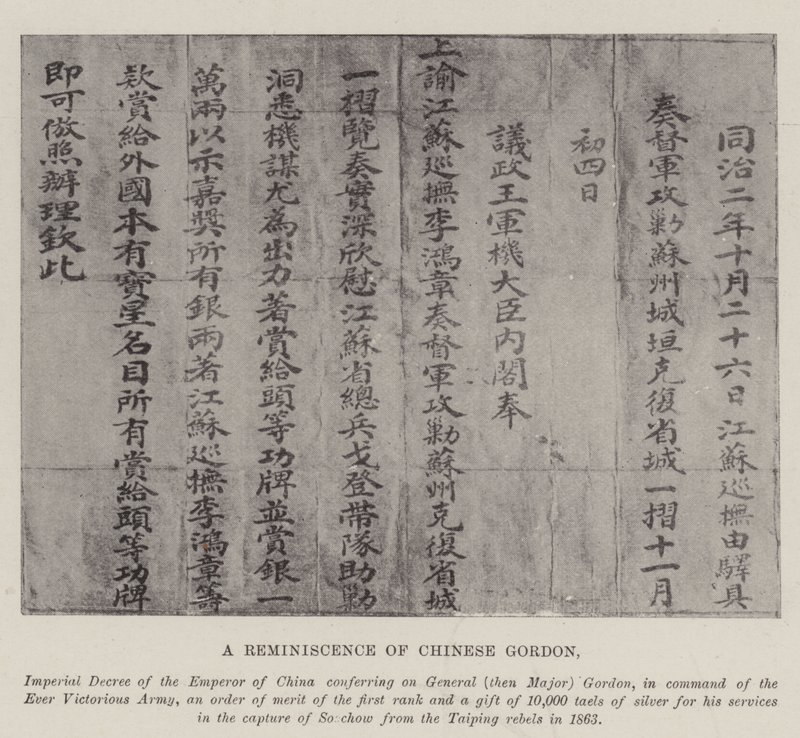 同治二年十月二十六日江蘇巡撫由驛具
奏督軍攻剿蘇州城垣克復省城一摺十一月
初四日
議政王軍機大臣內閣奉
上諭江蘇巡撫李鴻章奏督軍攻剿蘇州克復省城
一摺覽奏實深欣慰江蘇省總兵戈登帶隊助剿
洞悉機謀尤為出力著賞給頭等功牌並賞銀一
萬兩以示嘉獎所有銀兩著江蘇巡撫李鴻章籌
款賞給外國本有寶星名目所有賞給頭等功牌
即可倣照辦理欽此
A REMINISCENCE OF CHINESE GORDON,
Imperial Decree of the Emperor of China conferring on General (then Major) Gordon, in command of the
Ever Victorious Army, an order of merit of the first rank and a gift of 10,000 taels of silver for his services
in the capture of Soochow from the Taiping rebels in 1863.